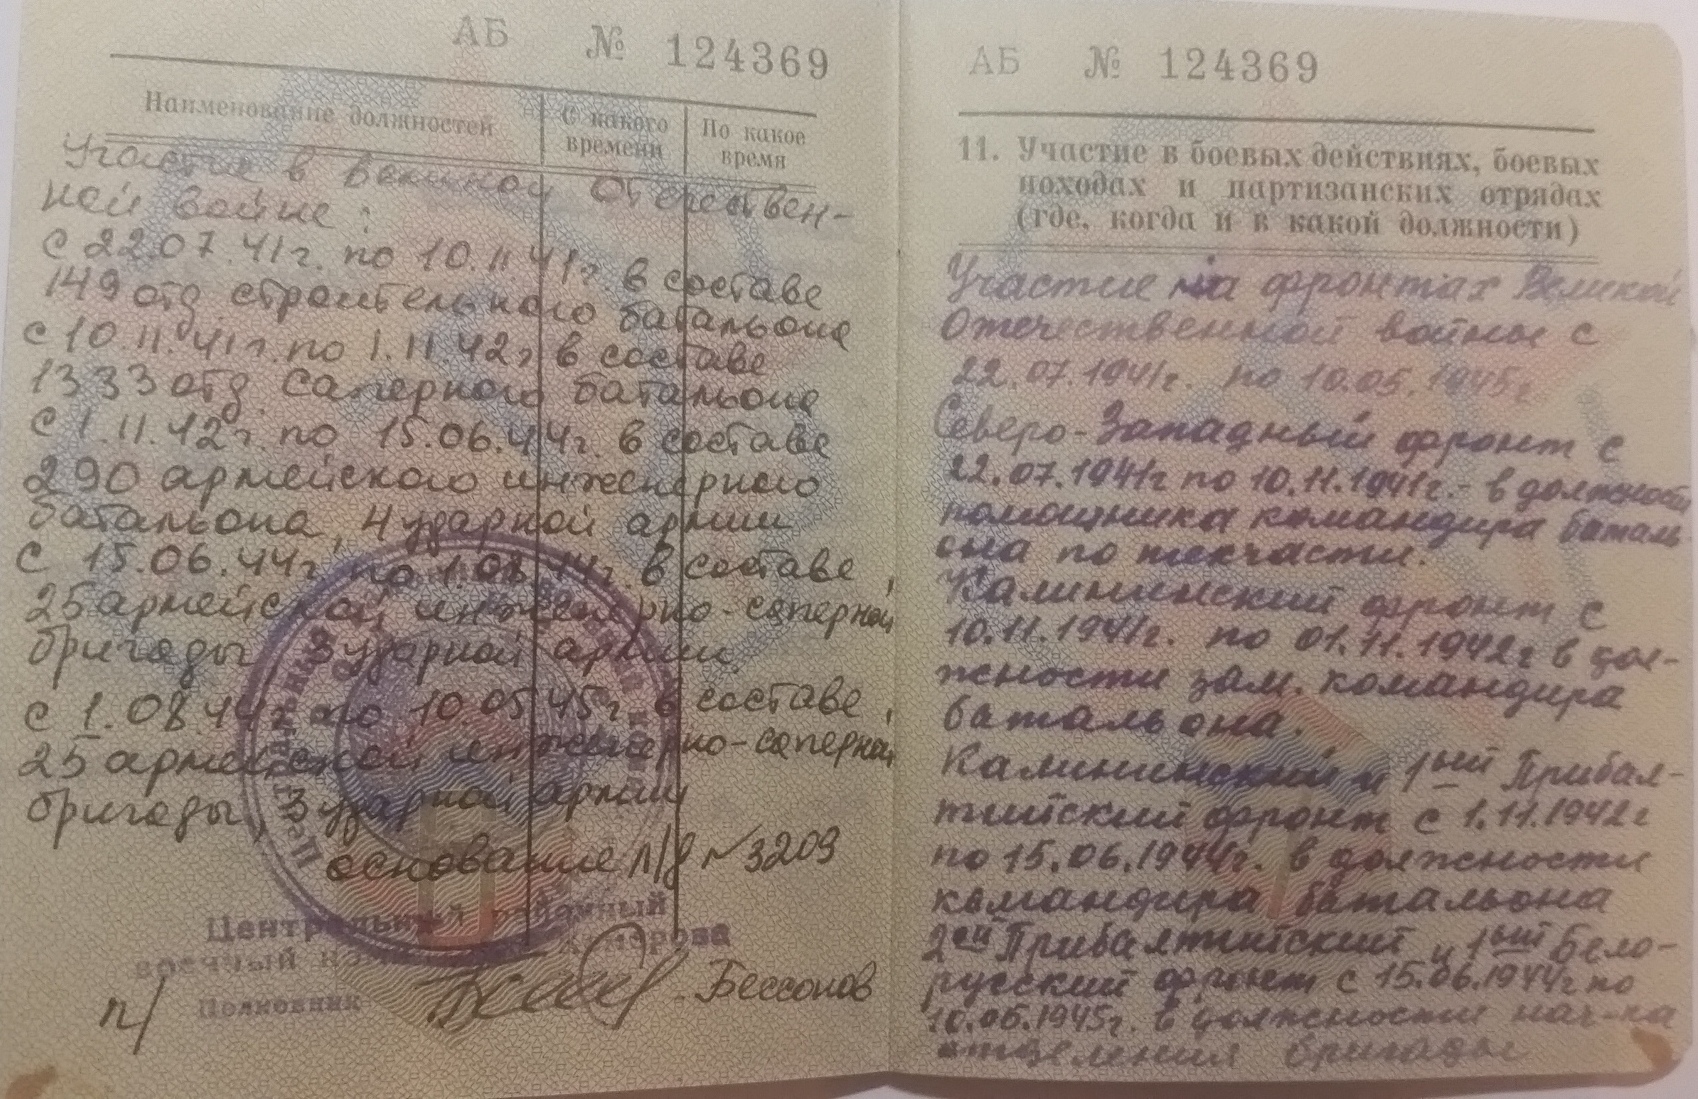 АБ № 124369
Наименование должностей
С какого времени
По какое время
Участие в Великой Отечествен-
ной войне:
с 22.07.41г. по 10.11.41г. в составе
149 отд. строительного батальона
с 10.11.41г. по 1.11.42г в составе
1333 отд. саперного батальона
с 1.11.42г. по 15.06.44г. в составе
290 армейского инженерного
батальона, 4 ударной армии
с 15.06.44г. по 1.08.44г. в составе
25 армейской инженерно-саперной
бригады 3 ударной армии
с 1.08.44г по 10.05.45г. в составе
25 армейской инженерно-саперной
бригады, 3 ударной армии
основание л/д №3209
Центральный районный
военный
Полковник
п/ Бессонов
АБ № 124369
11. Участие в боевых действиях, боевых
походах и партизанских отрядах
(где, когда и в какой должности)
Участие на фронтах Великой
Отечественной войны с
22.07.1941г. по 10.05.1945г
Северо-Западный фронт с
22.07.1941г по 10.11.1941г.- в должности
помощника командира баталь
она по техчасти.
Калининский фронт с
10.11.1941г. по 01.11.1942г в дол-
жности зам. командира
батальона.
Калининский и 1ый Прибал-
тийский фронт с 1.11.1942г
по 15.06.1944г. в должности
командира батальона
2ой Прибалтийский и 1ый Бело-
русский фронт с 15.06.1944г по
10.05.1945г. в должности нач-ка
отделения бригады